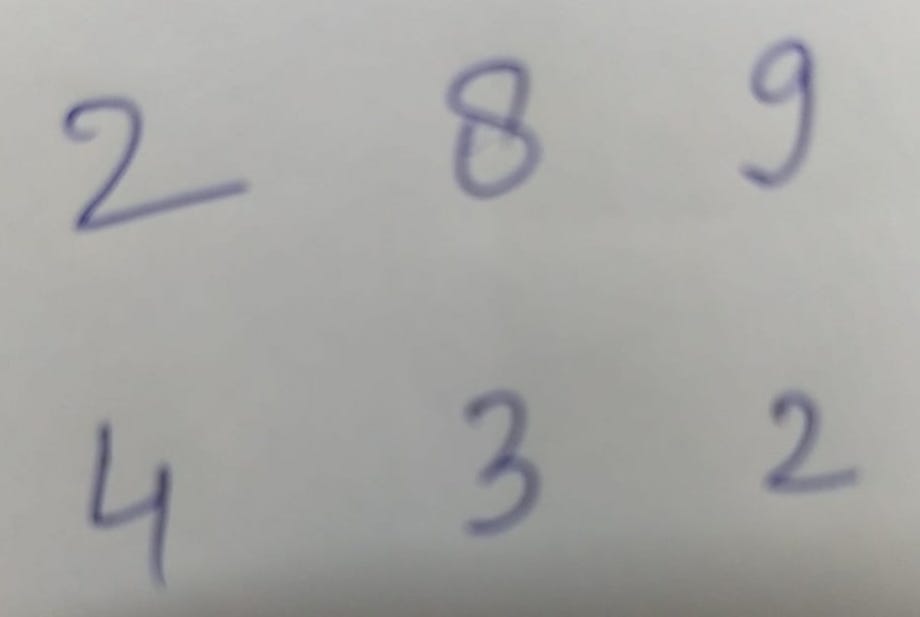 2 8 9
4 3 2